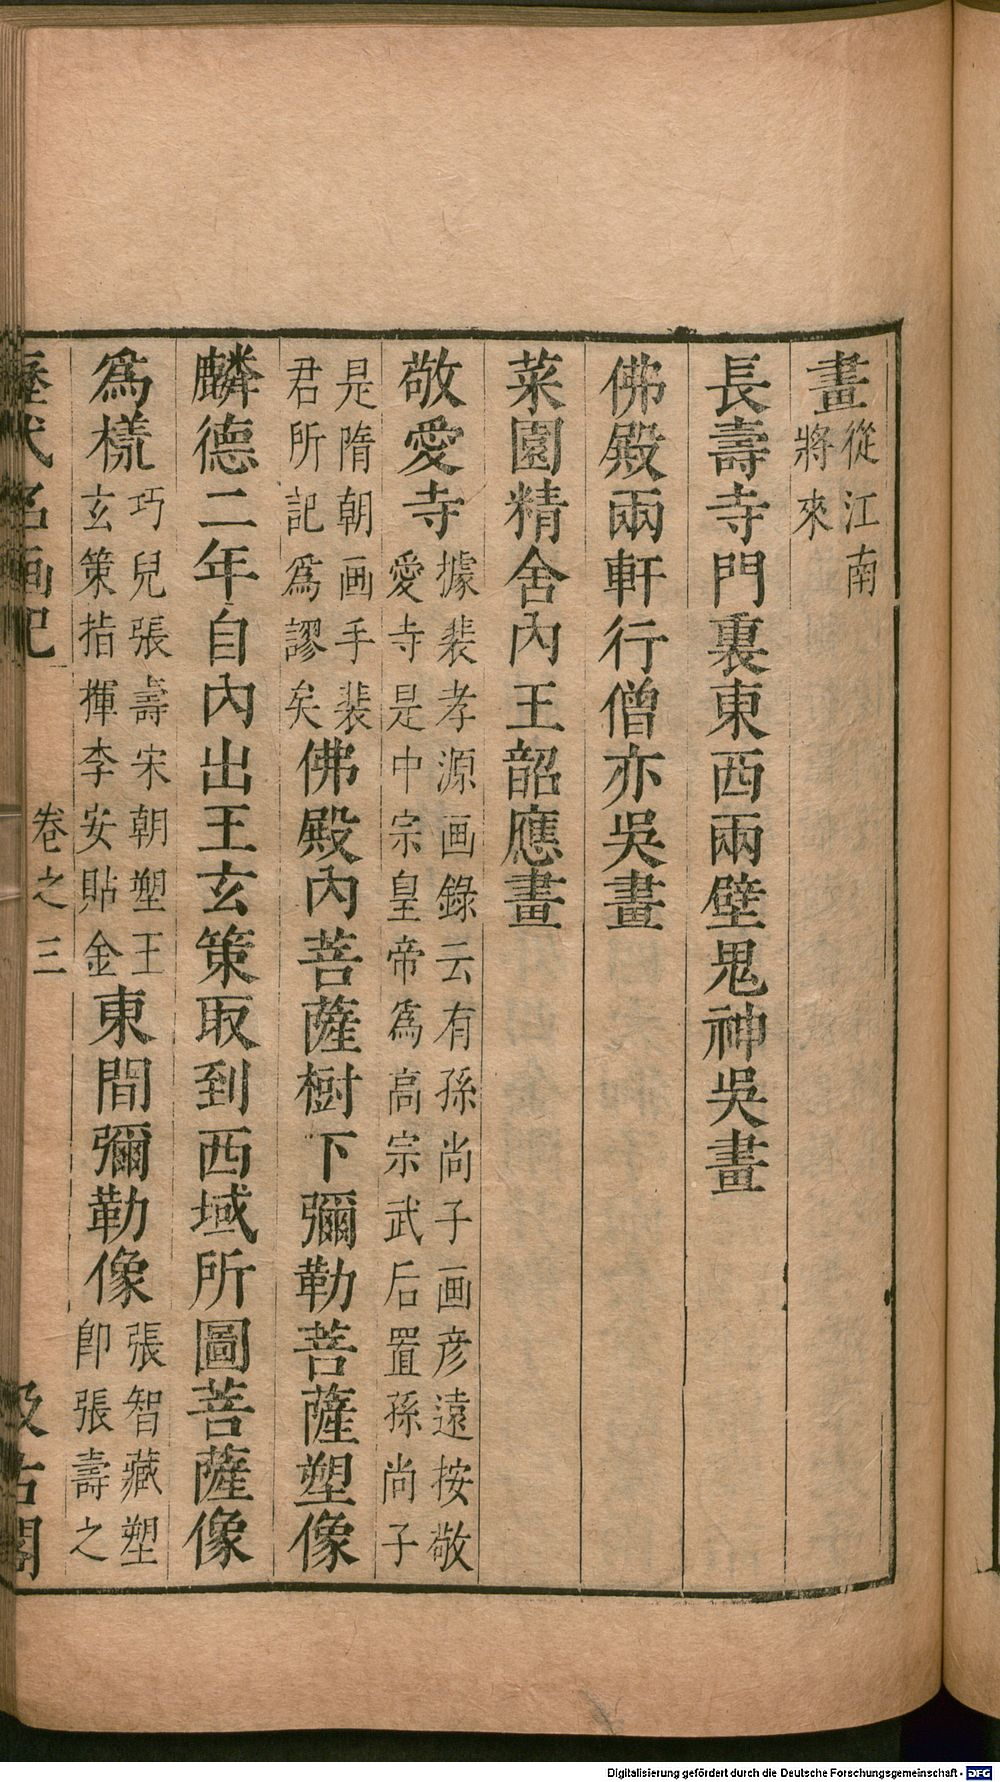 畫從江南將來
長壽寺門裏東西兩壁鬼神吳畫
佛殿兩軒行僧亦吳畫
菜園精舍內王韶應畫
敬愛寺據裴孝源画錄云有孫尚子画彥遠按敬愛寺是中宗皇帝爲高宗武后置孫尚子
是隋朝画手裴君所記爲謬矣佛殿內菩薩樹下彌勒菩薩塑像
麟德二年自內出王玄策取到西域所圖菩薩像
爲樣巧兒張壽宋朝塑王玄策指揮李安貼金東間彌勒像張智藏塑卽張壽之
歷代名画記 卷之三 汲古閣
Digitalisierung gefördert durch die Deutsche Forschungsgemeinschaft - DFG